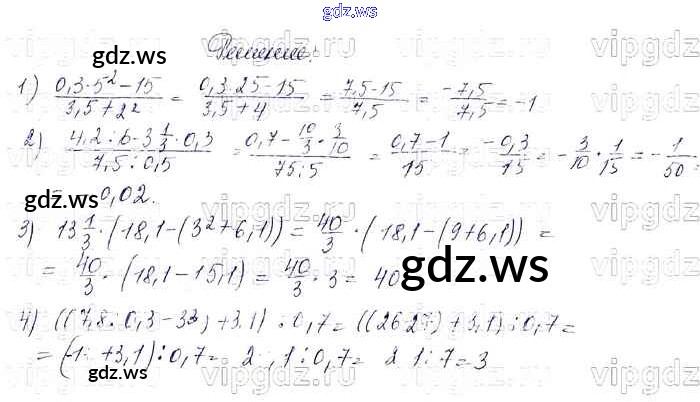 gdz.ws
gdz.ws
Решение:
1) (0,3·5² - 15)/(3,5 + 2²) = (0,3·25 - 15)/(3,5 + 4) = (7,5 - 15)/7,5 = -7,5/7,5 = -1
2) (4,2 : 6 - 3 1/3 · 0,3)/(7,5 : 0,5) = (0,7 - 10/3 · 3/10)/(75 : 5) = (0,7 - 1)/15 = -0,3/15 = -3/10 · 1/15 = -1/50 =
0,02.
gdz.ws
3) 13 1/3 · (18,1 - (3² + 6,1)) = 40/3 · (18,1 - (9 + 6,1)) =
= 40/3 · (18,1 - 15,1) = 40/3 · 3 = 40
gdz.ws
4) ((7,8 : 0,3 - 3³) + 3,1) : 0,7 = ((26 - 27) + 3,1) : 0,7 =
= (-1 + 3,1) : 0,7 = 2,1 : 0,7 = 21 : 7 = 3
gdz.ws
gdz.ws
vipgdz.ru